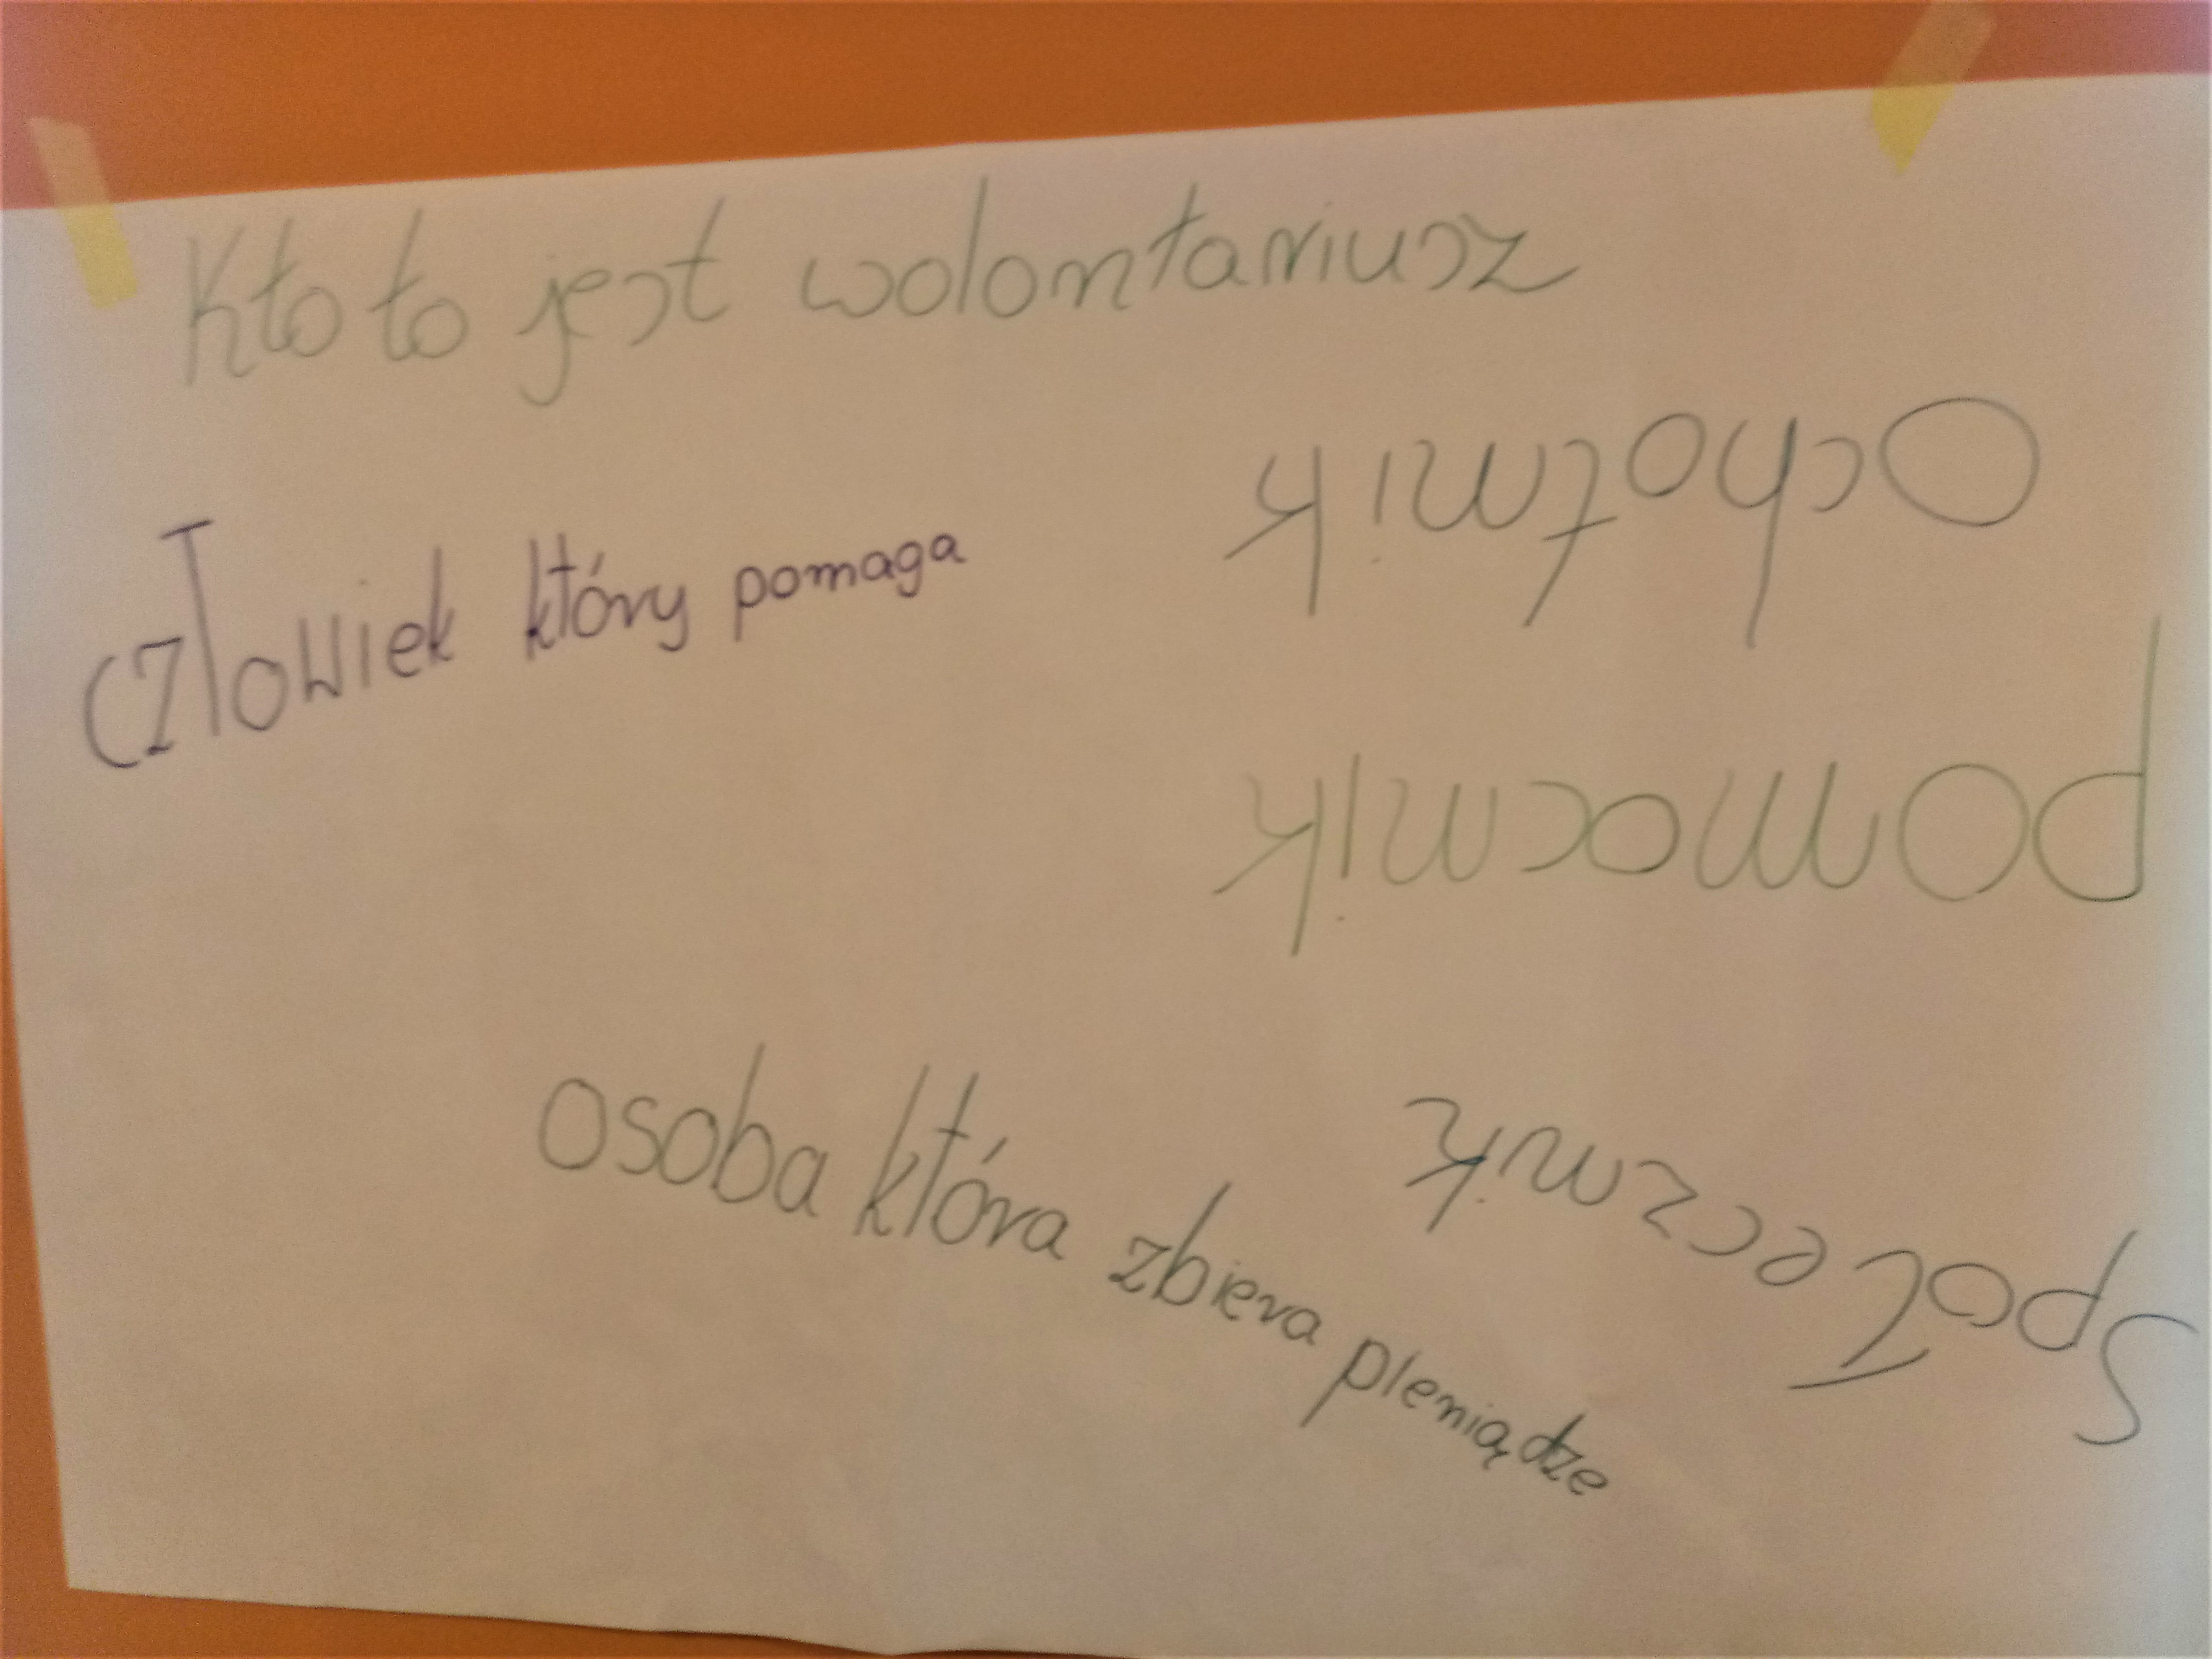 Kto to jest wolontariusz
Ochotnik
Człowiek który pomaga
pomocnik
osoba która zbiera pieniądze
Społecznik